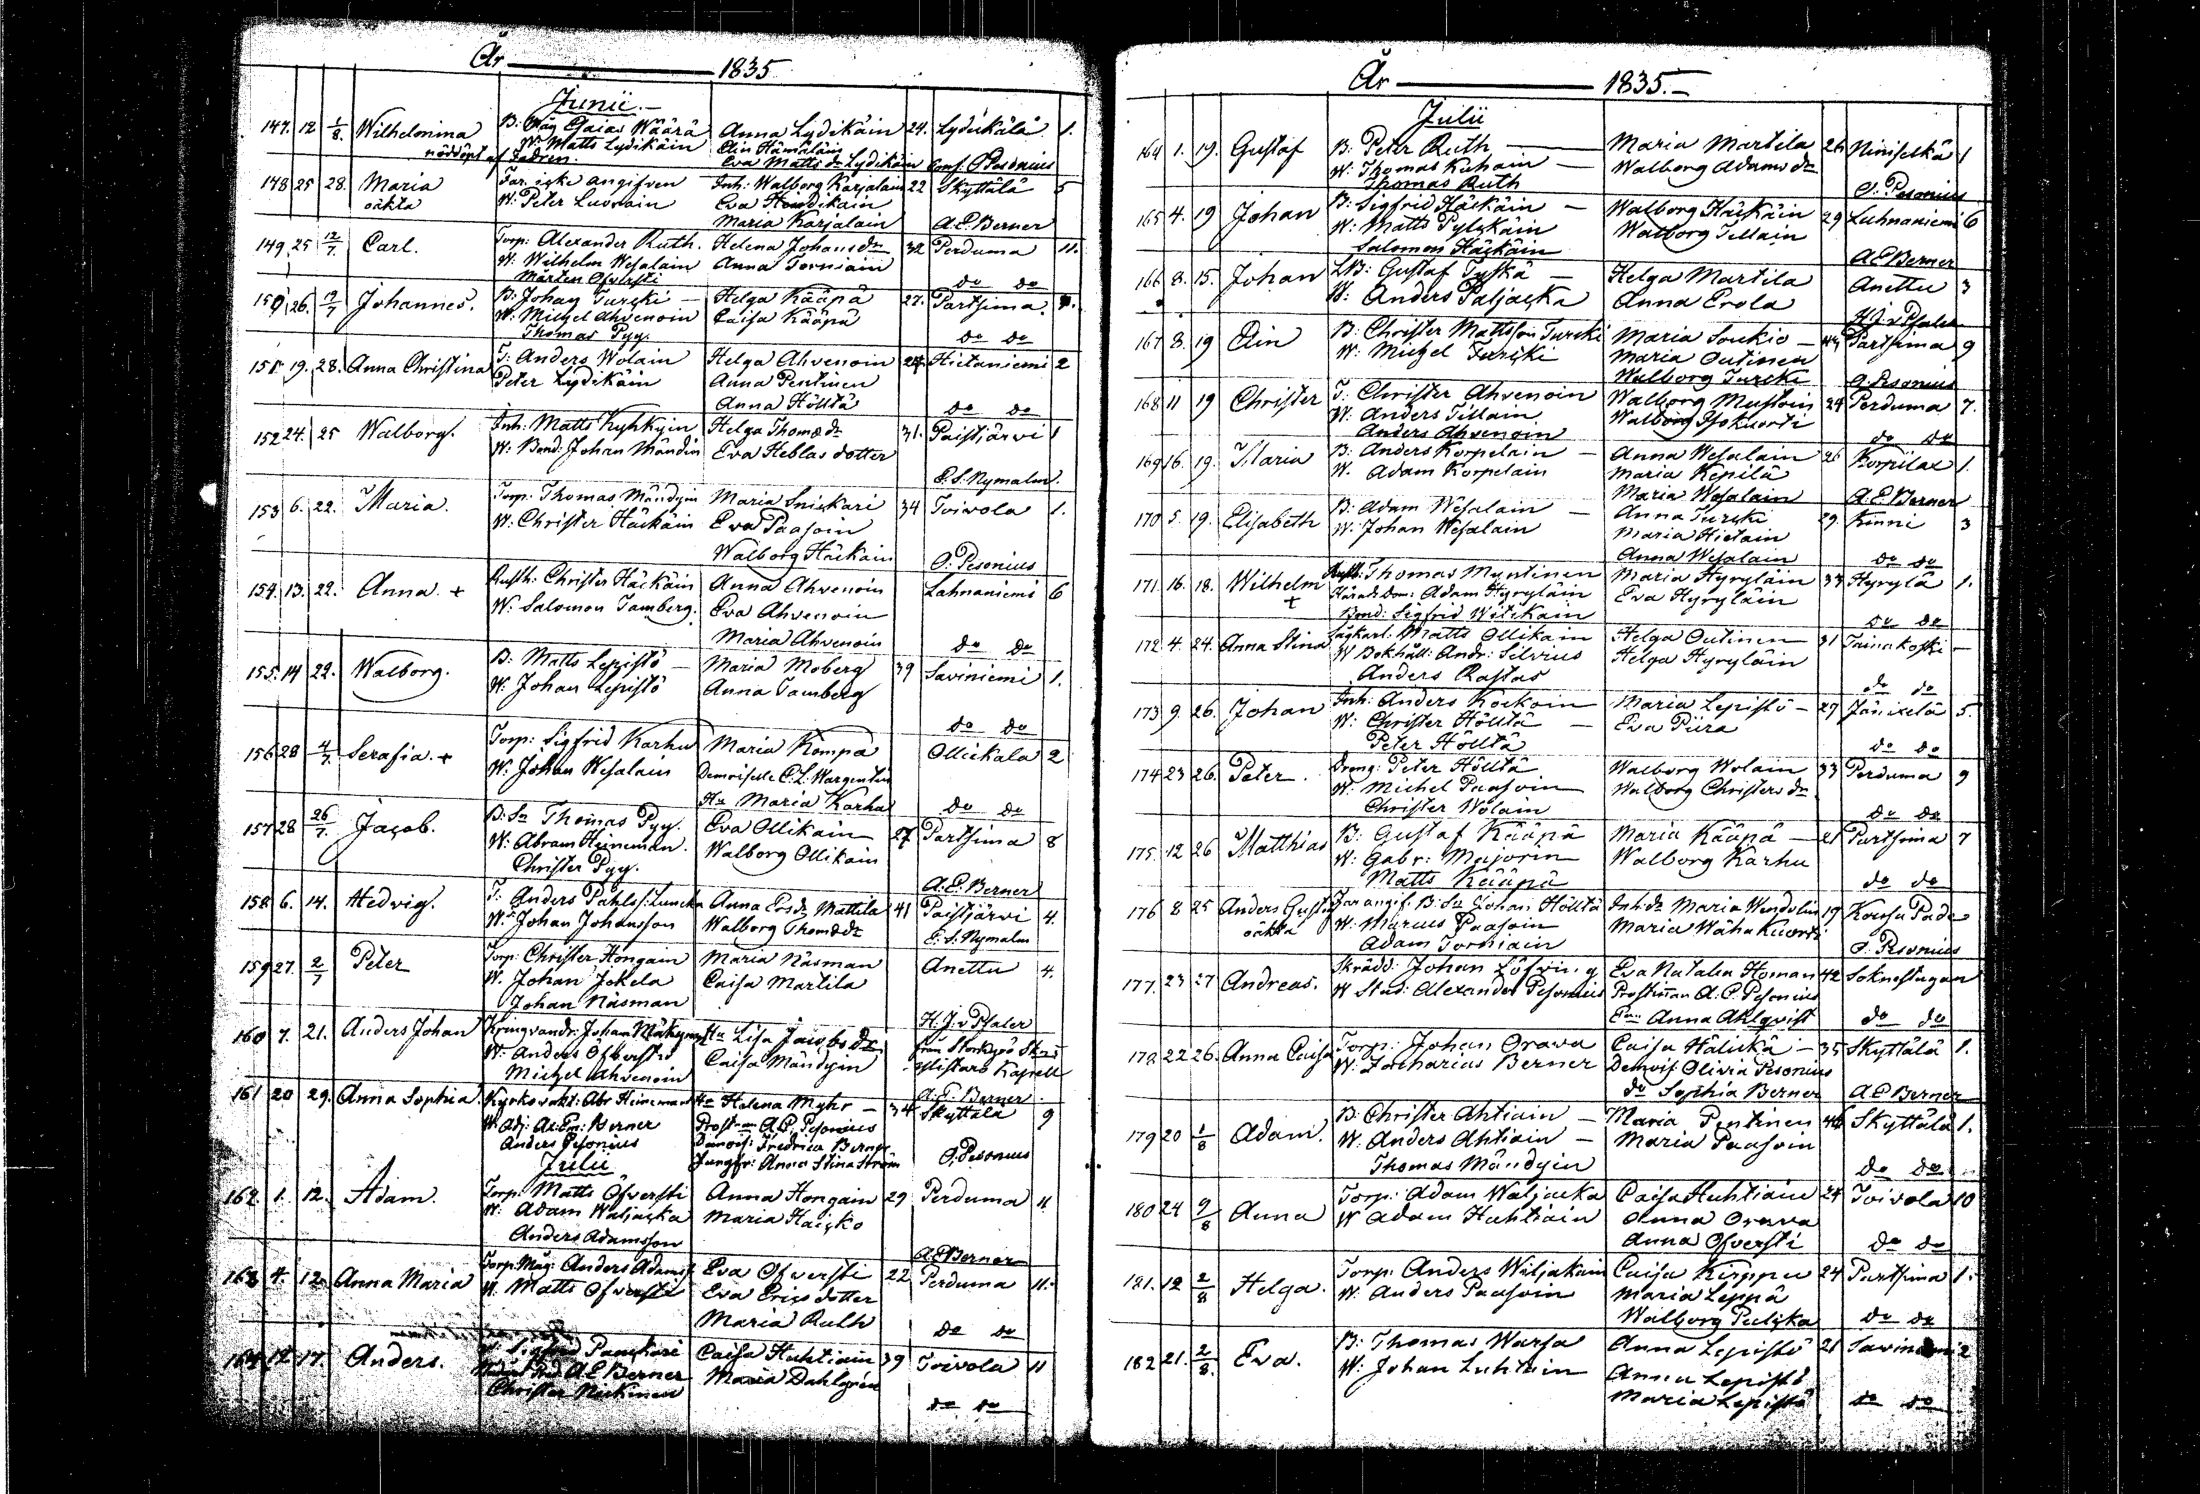 År 1835
Junii.
147. 12 1/8. Wilhelmina B: Måg Esaias Wäärä Anna Lydikäin 24. Lydikälä 1.
W: Matts Lydikäin Elin Hämäläin
nöddöpt af Fadren. Eva Matts dr Lydikäin Conf. O Pesonius
148 25 28. Maria Far icke angifven Inh: Walborg Karjalain 22 Skyttälä 5
oäkta W: Peter Luoain Eva Hendikain
Maria Karjalain A. E. Berner
149. 25 12/7. Carl. Torp: Alexander Ruth. Helena Johans dr 32 Perduma 11.
W: Wilhelm Wesalain Anna Torniain
Mårten Öfversti do do
150. 26. 19/7 Johannes. B: Johan Turcki Helga Kääpä 27. Partsima
W: Michel Ahvenoin Caisa Kääpä
Thomas Pyy. do do
151. 19. 28. Anna Christina T: Anders Wolain Helga Ahvenoin 24. Hietaniemi 2
Peter Lydikäin Anna Pentinen
Anna Hölltä do do
152 24. 25 Walborg. Inh: Matts Kyhkyin Helga Thomæ dr 31. Paistjärvi 1
W: Bond: Johan Mändin Eva Heblas dotter
E. S. Nymalm.
153 6. 22. Maria. Torp: Thomas Mändyin Maria Snickari 34 Toivola 1.
W. Christer Häckäin Eva Paasoin
Walborg Häckäin O. Pesonius
154. 13. 22. Anna. + Rusth: Christer Häckäin Anna Ahvenoin Lahnaniemi 6
W. Salomon Tamberg. Eva Ahvenoin
Maria Ahvenoin do do
155. 14 22. Walborg. B: Matts Lepistö Maria Moberg 39 Saviniemi 1.
W: Johan Lepistö Anna Tamberg
do do
156 28 4/7 Serafia. + Torp: Sigfrid Karhu Maria Kompa Ollickala 2
W: Johan Wesalain Demoiselle C. L. Wargentin
Hu Maria Karhu do do
157 28 26/7. Jacob. B: Sn Thomas Pyy. Eva Ollikain 27 Partsima 8
W: Abram Heineman. Walborg Ollikain
Christer Pyy. A. E. Berner
158 6. 14. Hedvig. T: Anders Påhls: Luncka Anna Ersdr Mattila 41 Paistjärvi 4.
W: Johan Johansson Walborg Thomædr
E. S. Nymalm
159 27. 2/7 Peter Torp: Christer Hongain Maria Näsman Anettu 4.
W. Johan Jokela Caisa Martila
Johan Näsman H. J. v Pfaler
160 7. 21. Anders Johan Kringvandr: Johan Hu Lisa Jacobs dr från Storkyro Skn:s
W: Anders Öfversti Caisa Mändyin Kapell
Michel Ahvenoin A. E. Berner
161 20 29. Anna Sophia. Kyrkovakt: Abr Heineman Hu Helena Myhr 34 Skyttälä 9
W: Adj: Al: Em: Berner Prostinnan A. C. Pesonius
Anders Pesonius Demois: Fredrica Berner
Jungfr: Anna Stina Ström O. Pesonius
Julii
162. 1. 12. Adam. Torp: Matts Öfversti Anna Hongain 29 Perduma 11
W: Adam Waljacka Maria Haicko
Anders Adamsson A E Berner
163 4. 12. Anna Maria Torp: Måg: Anders Adamss: Eva Öfversti 22 Perduma 11.
W. Matts Öfversti Eva Erics dotter
Maria Ruth do do
164 14 17. Anders. Sigfrid Panckari Caisa Huhtiain 39 Toivola 11
A E Berner Maria Dahlgren
Christer Nickinen do do
År 1835.
Julii
164 1. 19. Gustaf B: Peter Ruth Maria Martila 26 Niniselkä 1
W: Thomas Kuhain Walborg Adams dr
Thomas Ruth O. Pesonius
165 4. 19 Johan B: Sigfrid Häckäin Walborg Häckäin 29 Lahnaniemi 6
W: Matts Pylckäin Walborg Tillain
Salomon Häckäin A E Berner
166 8. 15. Johan LB: Gustaf Tyskä Helga Martila Anettu 3
W: Anders Paljacka Anna Erola
H. J. v Pfaler
167 8. 19 Elin B: Christer Mattsson Turcki Maria Soukio 44 Partsima 9
W: Michel Turcki Maria Outinen
Walborg Turcki O. Pesonius
168 11 19 Christer T: Christer Ahvenoin Walborg Mustoin 24 Perduma 7.
W: Anders Tillain Walborg Isokuorti
Anders Ahvenoin do do
169 16. 19. Maria B: Anders Korpelain Anna Wesalain 26 Korpilax 1.
W. Adam Korpelain Maria Kepilä
Maria Wesalain A. E. Berner
170 5. 19. Elisabeth B: Adam Wesalain Anna Turcki 29. Kinni 3
W: Johan Wesalain Maria Hietain
Anna Wesalain do do
171 16. 18. Wilhelm + Rusth: Thomas Myntinen Maria Hyryläin 33 Hyrylä 1.
Härads Dom: Adam Hyryläin Eva Hyryläin
Bond: Sigfrid Witikain do do
172 4. 24. Anna Stina Sågkarl: Matts Ollikain Helga Outinen 31 Tainakoski
W Bokhåll: Andr: Silvius Helga Hyryläin
Anders Rastas do do
173 9. 26. Johan Inh: Anders Kockoin Maria Lepistö 27 Jänickelä 5.
W: Christer Hölltä Eva Piira
Peter Hölltä do do
174 23 26. Peter. Dreng: Peter Hölltä Walborg Wolain 33 Perduma 9
W. Michel Paasoin Walborg Christers dr
Christer Wolain do do
175 12 26 Matthias B: Gustaf Kääpä Maria Kääpä 21 Partsima 7
W: Gabr: Majorin Walborg Karhu
Matts Kääpä do do
176 8 25 Anders Gustaf Far angif: B: Sn Johan Hölltä Inh: dr Maria Wendelin 19 Kousu Pada
oäkta W: Marcus Paasoin Maria Wähäkuorti
Adam Torniain O. Pesonius
177. 23 27 Andreas. Skrädd: Johan Löfving Eva Natalia Homan 42 Soknestugan
W Stud: Alexander Pesonius Prostinnan A. C. Pesonius
Anna Ahlqvist do do
178 22 26. Anna Caisa Torp: Johan Orava Caisa Hälickä 35 Skyttälä 1.
W. Zacharias Berner Demois: Olivia Pesonius
do Sophia Berner A E Berner
179 20 1/8 Adam. B. Christer Ahtiain Maria Pentinen 44 Skyttälä 1.
W. Anders Ahtiain Maria Paasoin
Thomas Mändyin do do
180 24 9/8 Anna Torp: Adam Waljacka Caisa Huhtiain 24 Toivola 10
W Adam Huhtiain Anna Orava
Anna Öfversti do do
181. 12 2/8 Helga. Torp: Anders Wäljakain Caisa Kirppu 24 Partsima 1.
W. Anders Paasoin Maria Leppä
Walborg Pulcka do do
182 21. 2/8. Eva. B: Thomas Warsa Anna Lepistö 21 Saviniemi 2
W: Johan Luhtain Anna Lepistö
Maria Lepistö do do